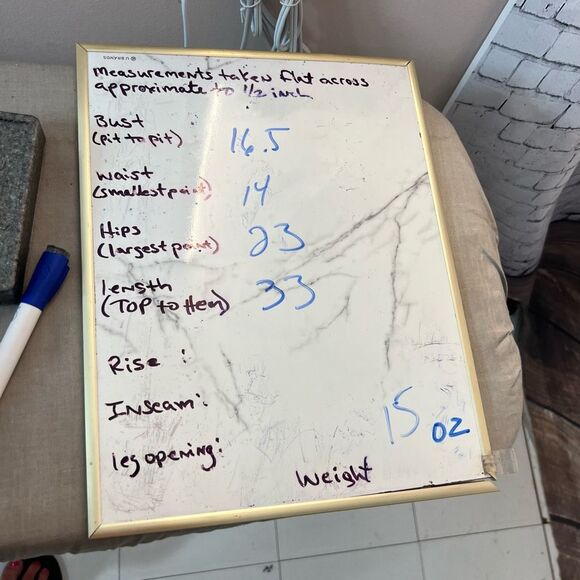 U BRANDS
measurements taken flat across
approximate to 1/2 inch
Bust
(pit to pit)
16.5
waist
(smallest point)
14
Hips
(largest point)
23
length
(TOP to Hem)
33
Rise :
Inseam:
leg opening:
15 oz
Weight